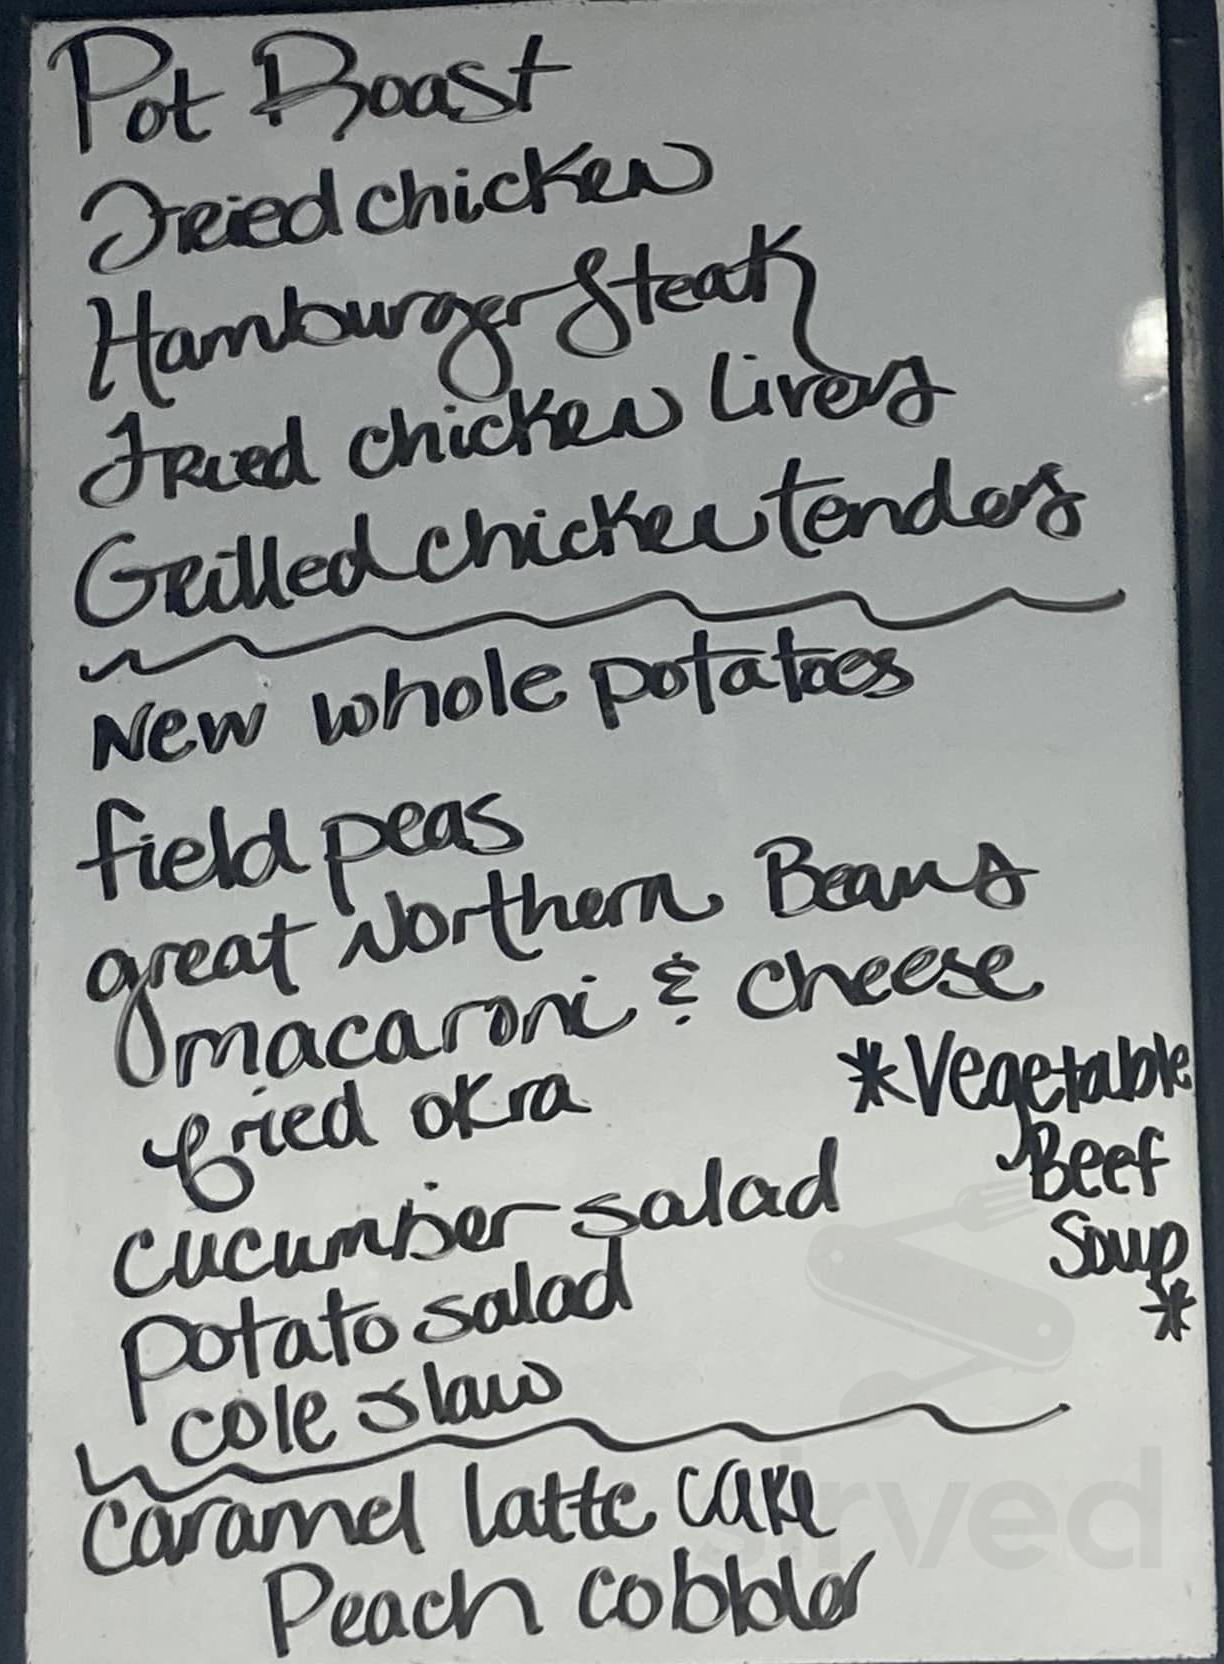 Pot Roast
Fried chicken
Hamburger Steak
Fried chicken livers
Grilled chicken tenders
New whole potatoes
field peas
great Northern Beans
macaroni & cheese
fried okra
*Vegetable
Beef
Soup
*
cucumber salad
potato salad
cole slaw
caramel latte cake
Peach cobbler
sirved